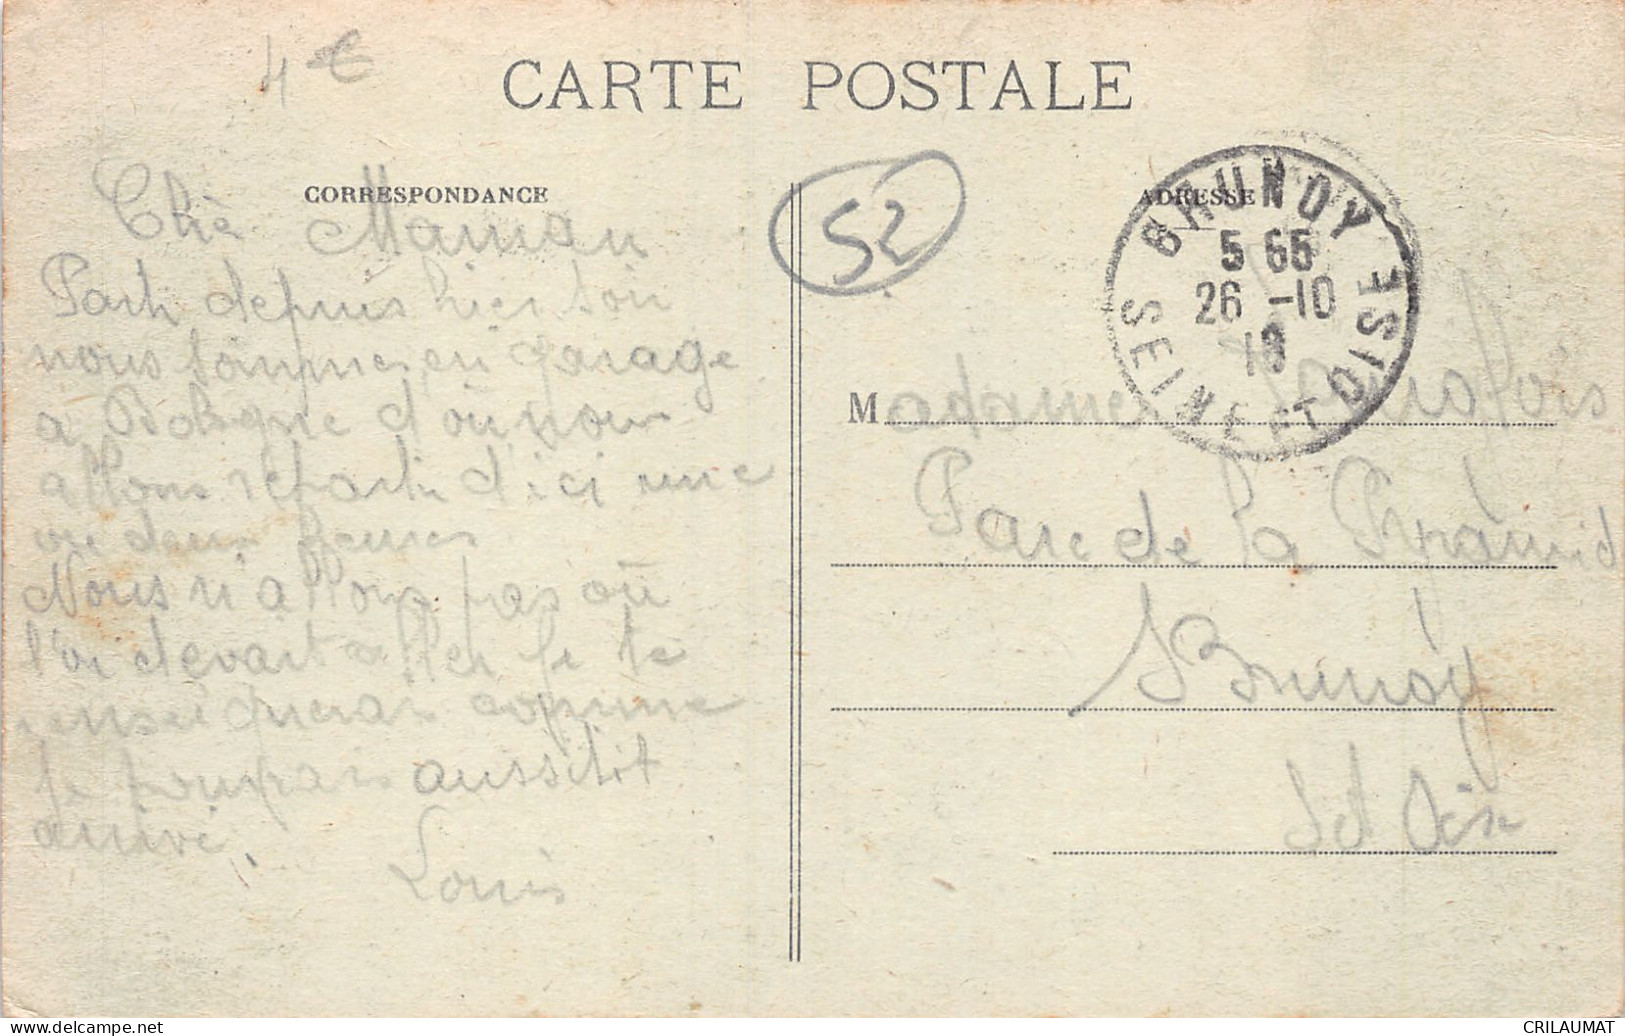 4 €
CARTE POSTALE
CORRESPONDANCE
52
ADRESSE
BRUNOY
5 65
26 -10
18
SEINE ET OISE
Chè Maman
Parti depuis hier soir
nous sommes en garage
a Bologne d'où nous
allons repartir d'ici une
ou deux heures
Nous n'allons pas où
l'on devait aller je te
renseignerai comme
je pourrais aussitôt
arrivé
Louis
Madame
Parc de la Pyramid
Brunoy
S et Oise
www.delcampe.net
CRILAUMAT